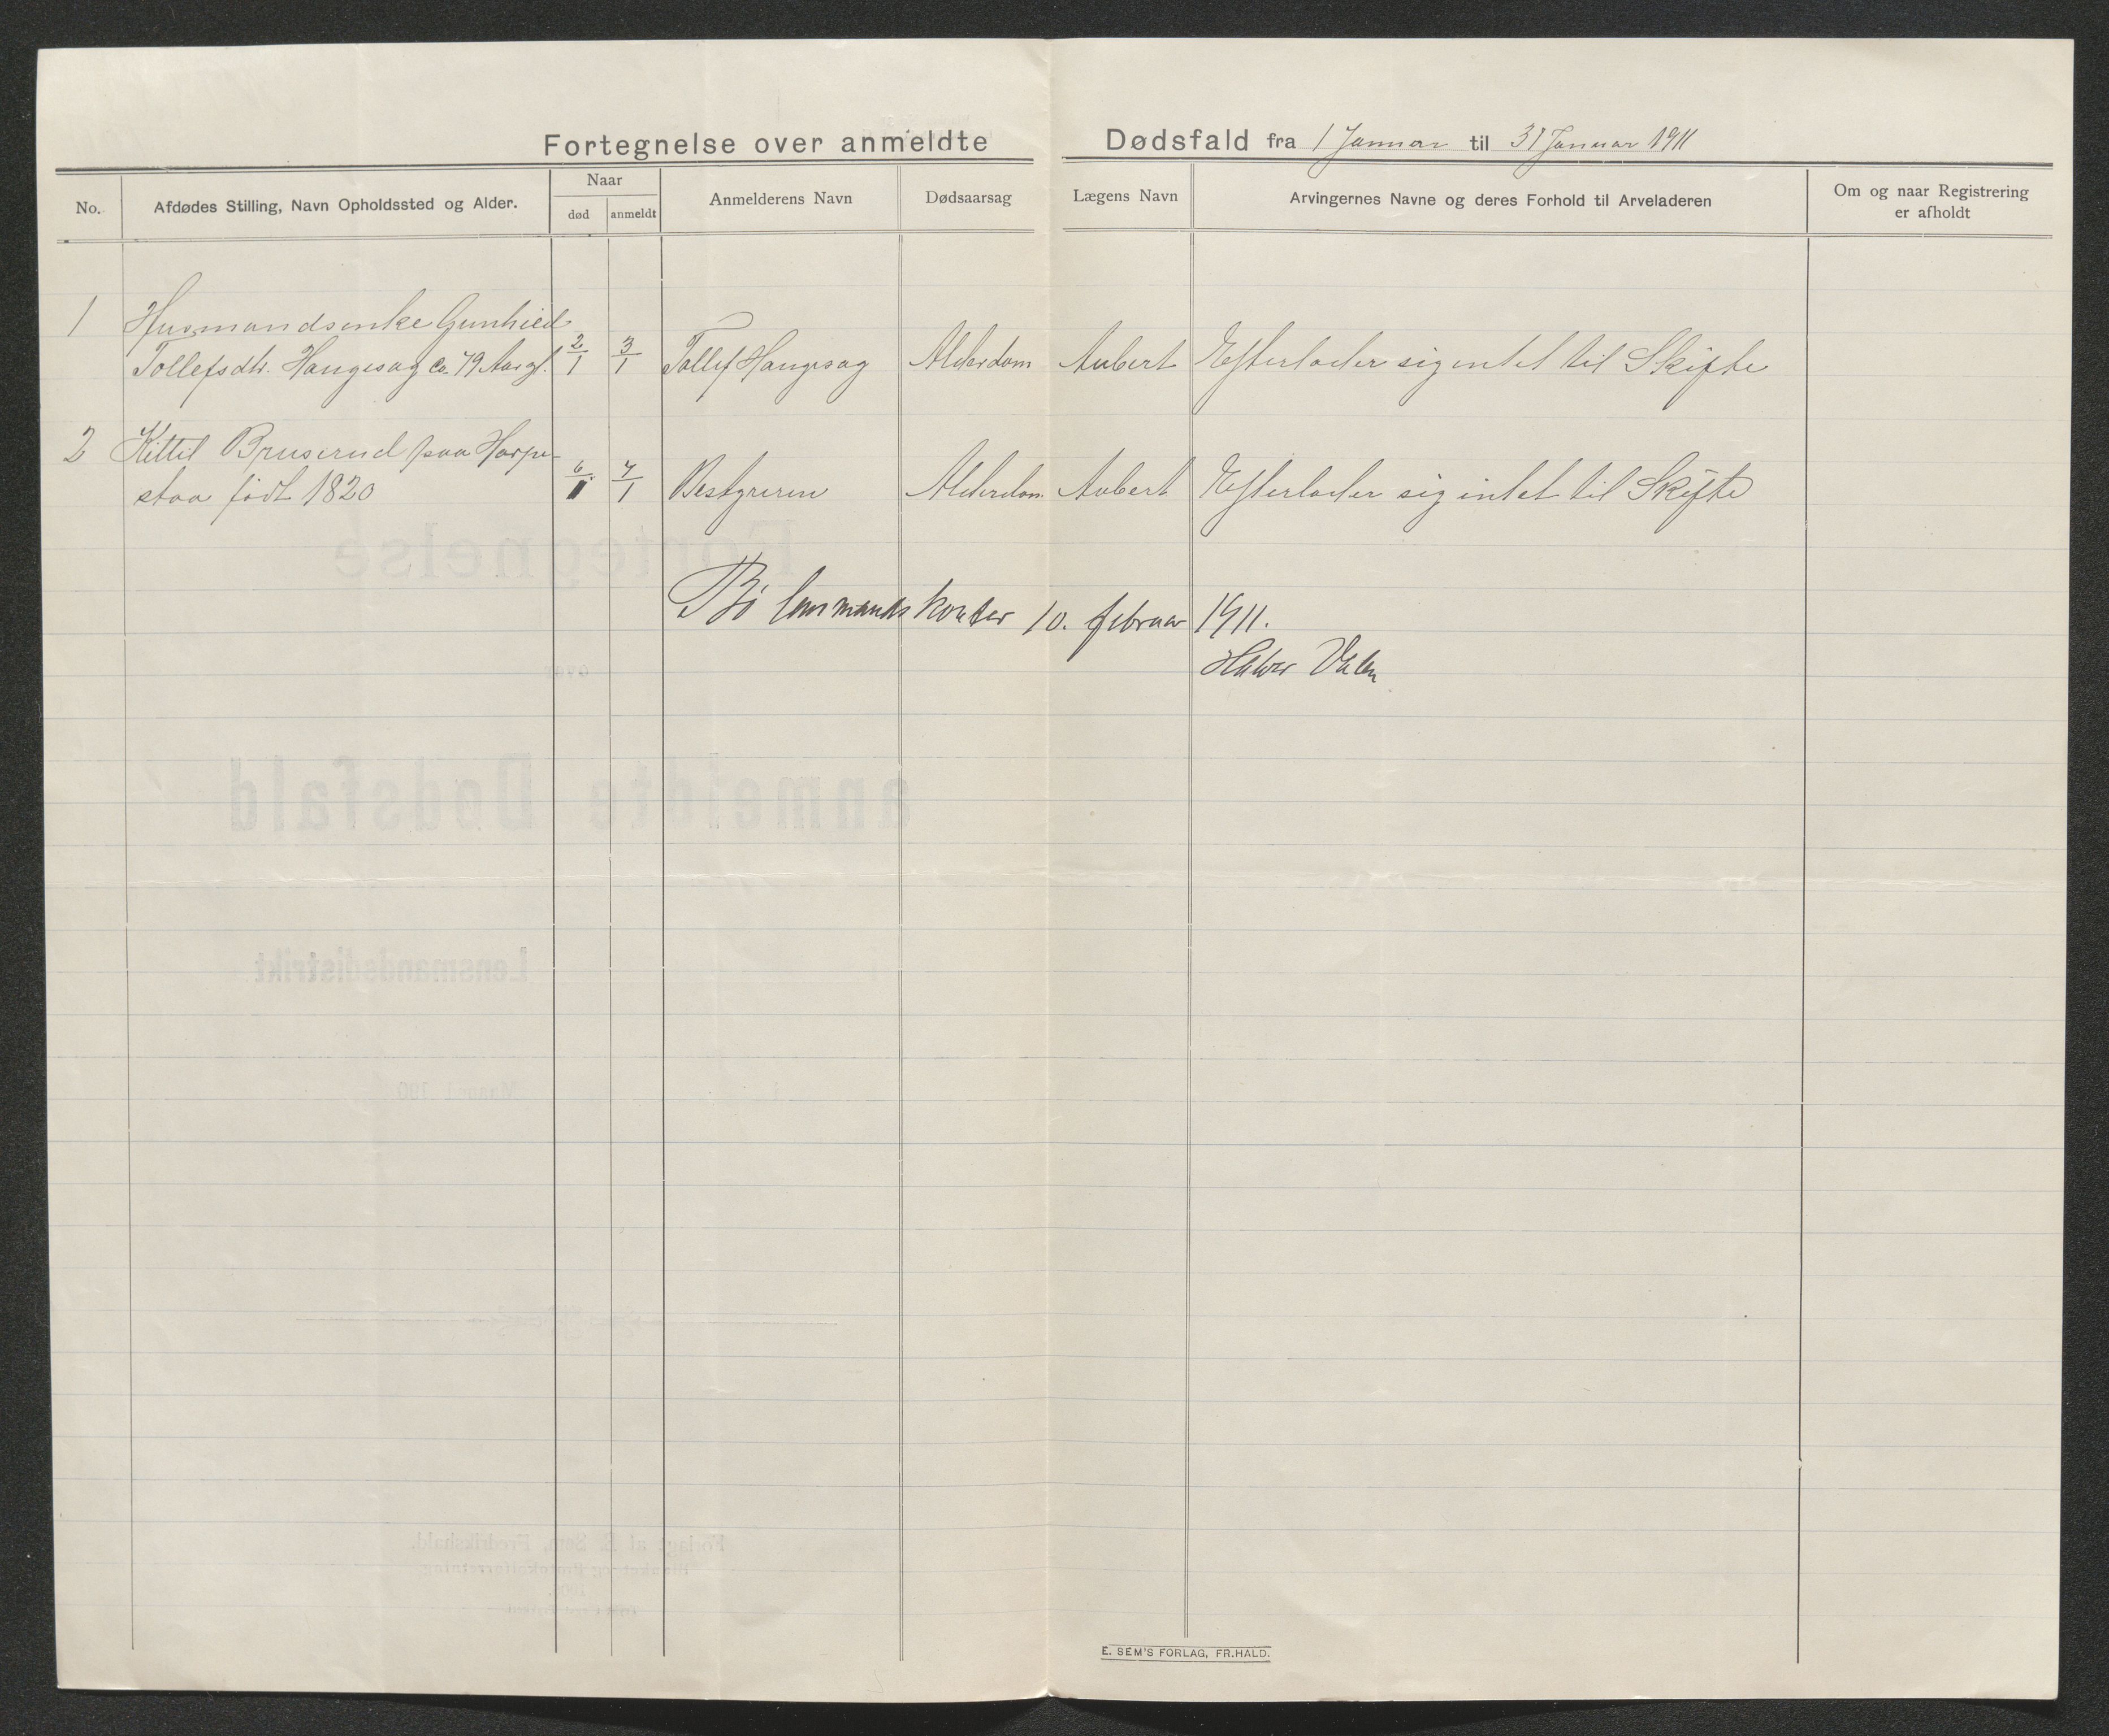 Fortegnelse over anmeldte Dødsfald fra 1 Januar til 31 Januar 1911
No.
Afdødes Stilling, Navn Opholdssted og Alder.
Naar
død
anmeldt
Anmelderens Navn
Dødsaarsag
Lægens Navn
Arvingernes Navne og deres Forhold til Arveladeren
Om og naar Registrering
er afholdt
1 Husmandsenke Gunhild
Tollefsdtr. Haugesag ca 79 Aar gl. 2/1 3/1 Tollef Haugesag Alderdom Aubert Efterlader sig intet til Skifte
2 Kittil Bruserud paa Harpe-
staa født 1820 6/1 7/1 Bestyreren Alderdom Aubert Efterlader sig intet til Skifte
Bø lensmandskontor 10. februar 1911.
Halvor Valen
E. SEM'S FORLAG, FR.HALD.